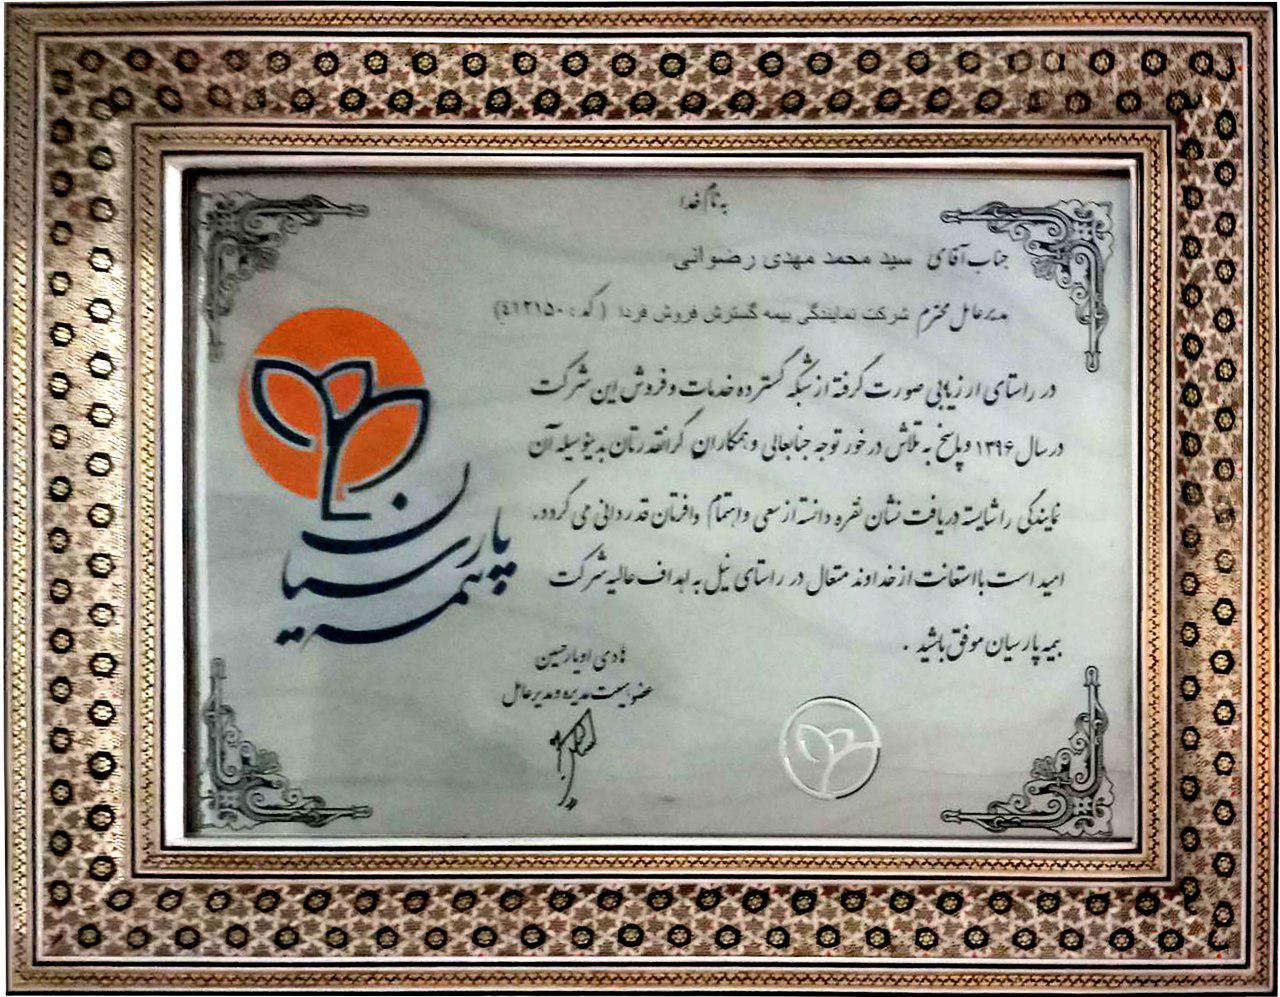 به نام خدا
جناب آقای سید محمد مهدی رضوانی
مدیرعامل محترم شرکت نمایندگی بیمه گسترش فروش فردا (کد: ٤١٢١٥٠)
در راستای ارزیابی صورت گرفته از شبکه گسترده خدمات و فروش این شرکت
در سال ۱۳۹۶ و پاسخ به تلاش در خور توجه جنابعالی و همکاران گرانقدرتان بدینوسیله آن
نمایندگی را شایسته دریافت نشان نقره دانسته از سعی و اهتمام وافرتان قدردانی می گردد.
امید است با استعانت از خداوند متعال در راستای نیل به اهداف عالیه شرکت
بیمه پارسیان موفق باشید .
بیمه پارسیان
هادی اویارحسین
عضو هیئت مدیره و مدیرعامل